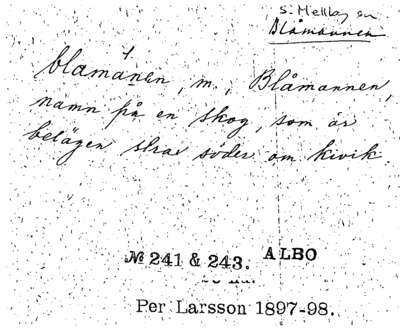 S. Mellby sn
Blåmannen
blamánen, m., Blåmannen,
namn på en skog, som är
belägen strax söder om Kivik
№ 241 & 243. ALBO
Per Larsson 1897-98.